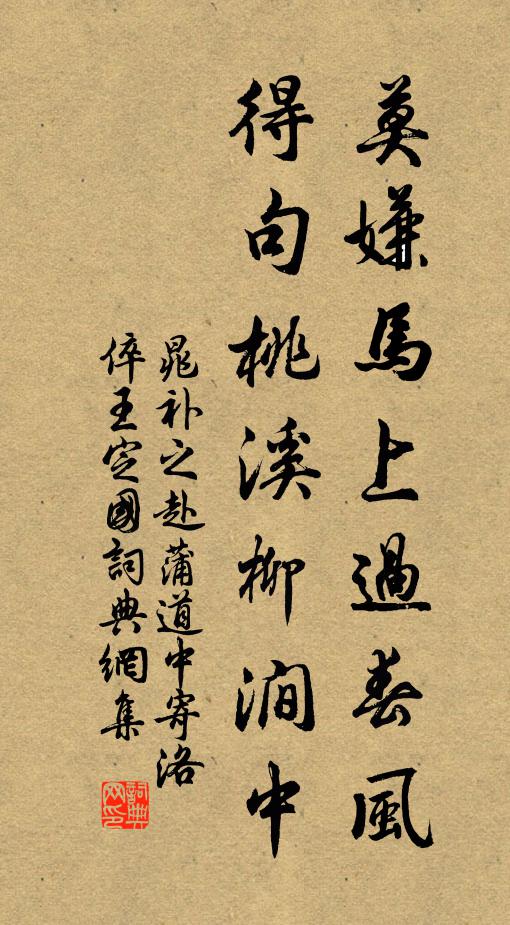 莫嫌馬上過春風
得句桃溪柳澗中
晁补之赴蒲道中寄洛
倅王定國詞典網集
詞典
网印